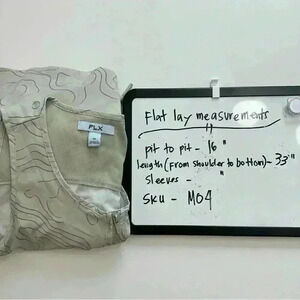 FLX
Flat lay measurements
"
pit to pit - 16 "
length (from shoulder to bottom) - 33"
sleeves - "
SKU - M04